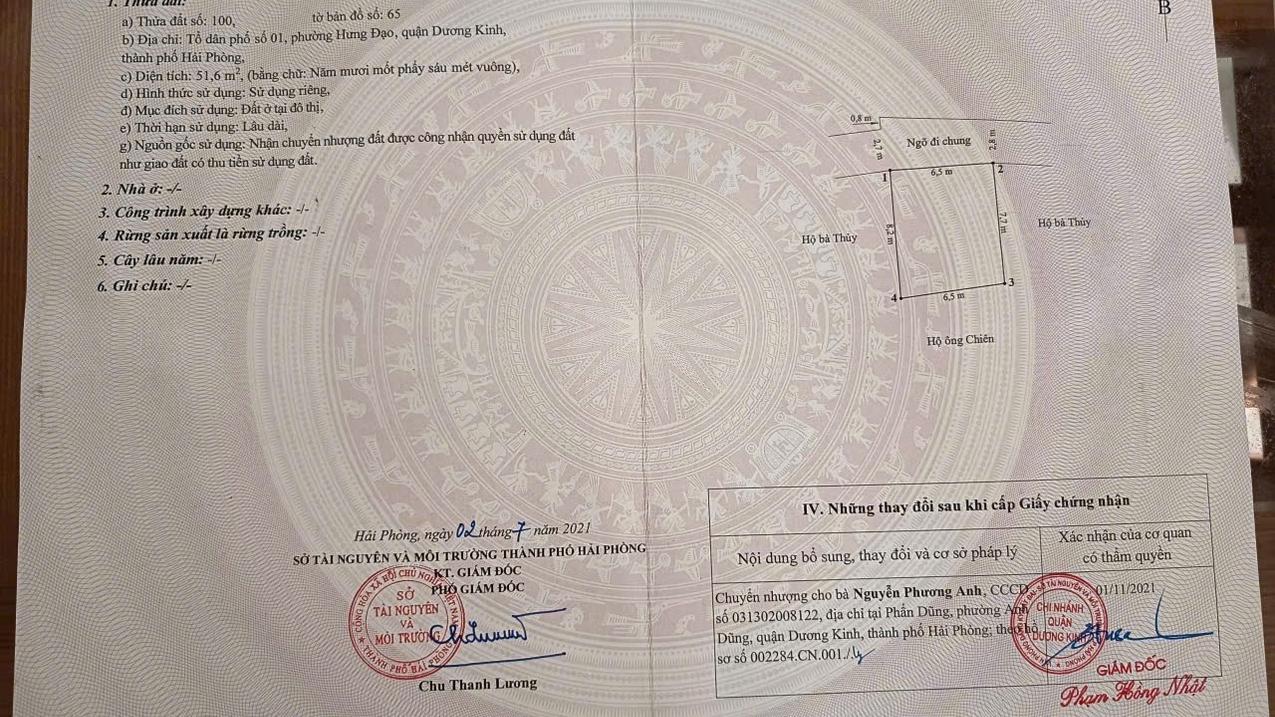 1. Thửa đất:
a) Thửa đất số: 100, tờ bản đồ số: 65
b) Địa chỉ: Tổ dân phố số 01, phường Hưng Đạo, quận Dương Kinh,
thành phố Hải Phòng,
c) Diện tích: 51,6 m², (bằng chữ: Năm mươi mốt phẩy sáu mét vuông),
d) Hình thức sử dụng: Sử dụng riêng,
đ) Mục đích sử dụng: Đất ở tại đô thị,
e) Thời hạn sử dụng: Lâu dài,
g) Nguồn gốc sử dụng: Nhận chuyển nhượng đất được công nhận quyền sử dụng đất
như giao đất có thu tiền sử dụng đất.
2. Nhà ở: -/-
3. Công trình xây dựng khác: -/-
4. Rừng sản xuất là rừng trồng: -/-
5. Cây lâu năm: -/-
6. Ghi chú: -/-
B
0,8 m
2,7 m
Ngõ đi chung
2,8 m
1
6,5 m
2
Hộ bà Thủy
8,2 m
7,7 m
Hộ bà Thủy
4
6,5 m
3
Hộ ông Chiên
Hải Phòng, ngày 02 tháng 7 năm 2021
SỞ TÀI NGUYÊN VÀ MÔI TRƯỜNG THÀNH PHỐ HẢI PHÒNG
KT. GIÁM ĐỐC
PHÓ GIÁM ĐỐC
CỘNG HÒA XÃ HỘI CHỦ NGHĨA VIỆT NAM
SỞ
TÀI NGUYÊN
VÀ
MÔI TRƯỜNG
THÀNH PHỐ HẢI PHÒNG
Chu Thanh Lương
IV. Những thay đổi sau khi cấp Giấy chứng nhận
Nội dung bổ sung, thay đổi và cơ sở pháp lý
Xác nhận của cơ quan
có thẩm quyền
Chuyển nhượng cho bà Nguyễn Phương Anh, CCCD
số 031302008122, địa chỉ tại Phấn Dũng, phường Anh
Dũng, quận Dương Kinh, thành phố Hải Phòng; theo hồ
sơ số 002284.CN.001./.
01/11/2021
CHI NHÁNH
QUẬN
DƯƠNG KINH
GIÁM ĐỐC
Phạm Hồng Nhật